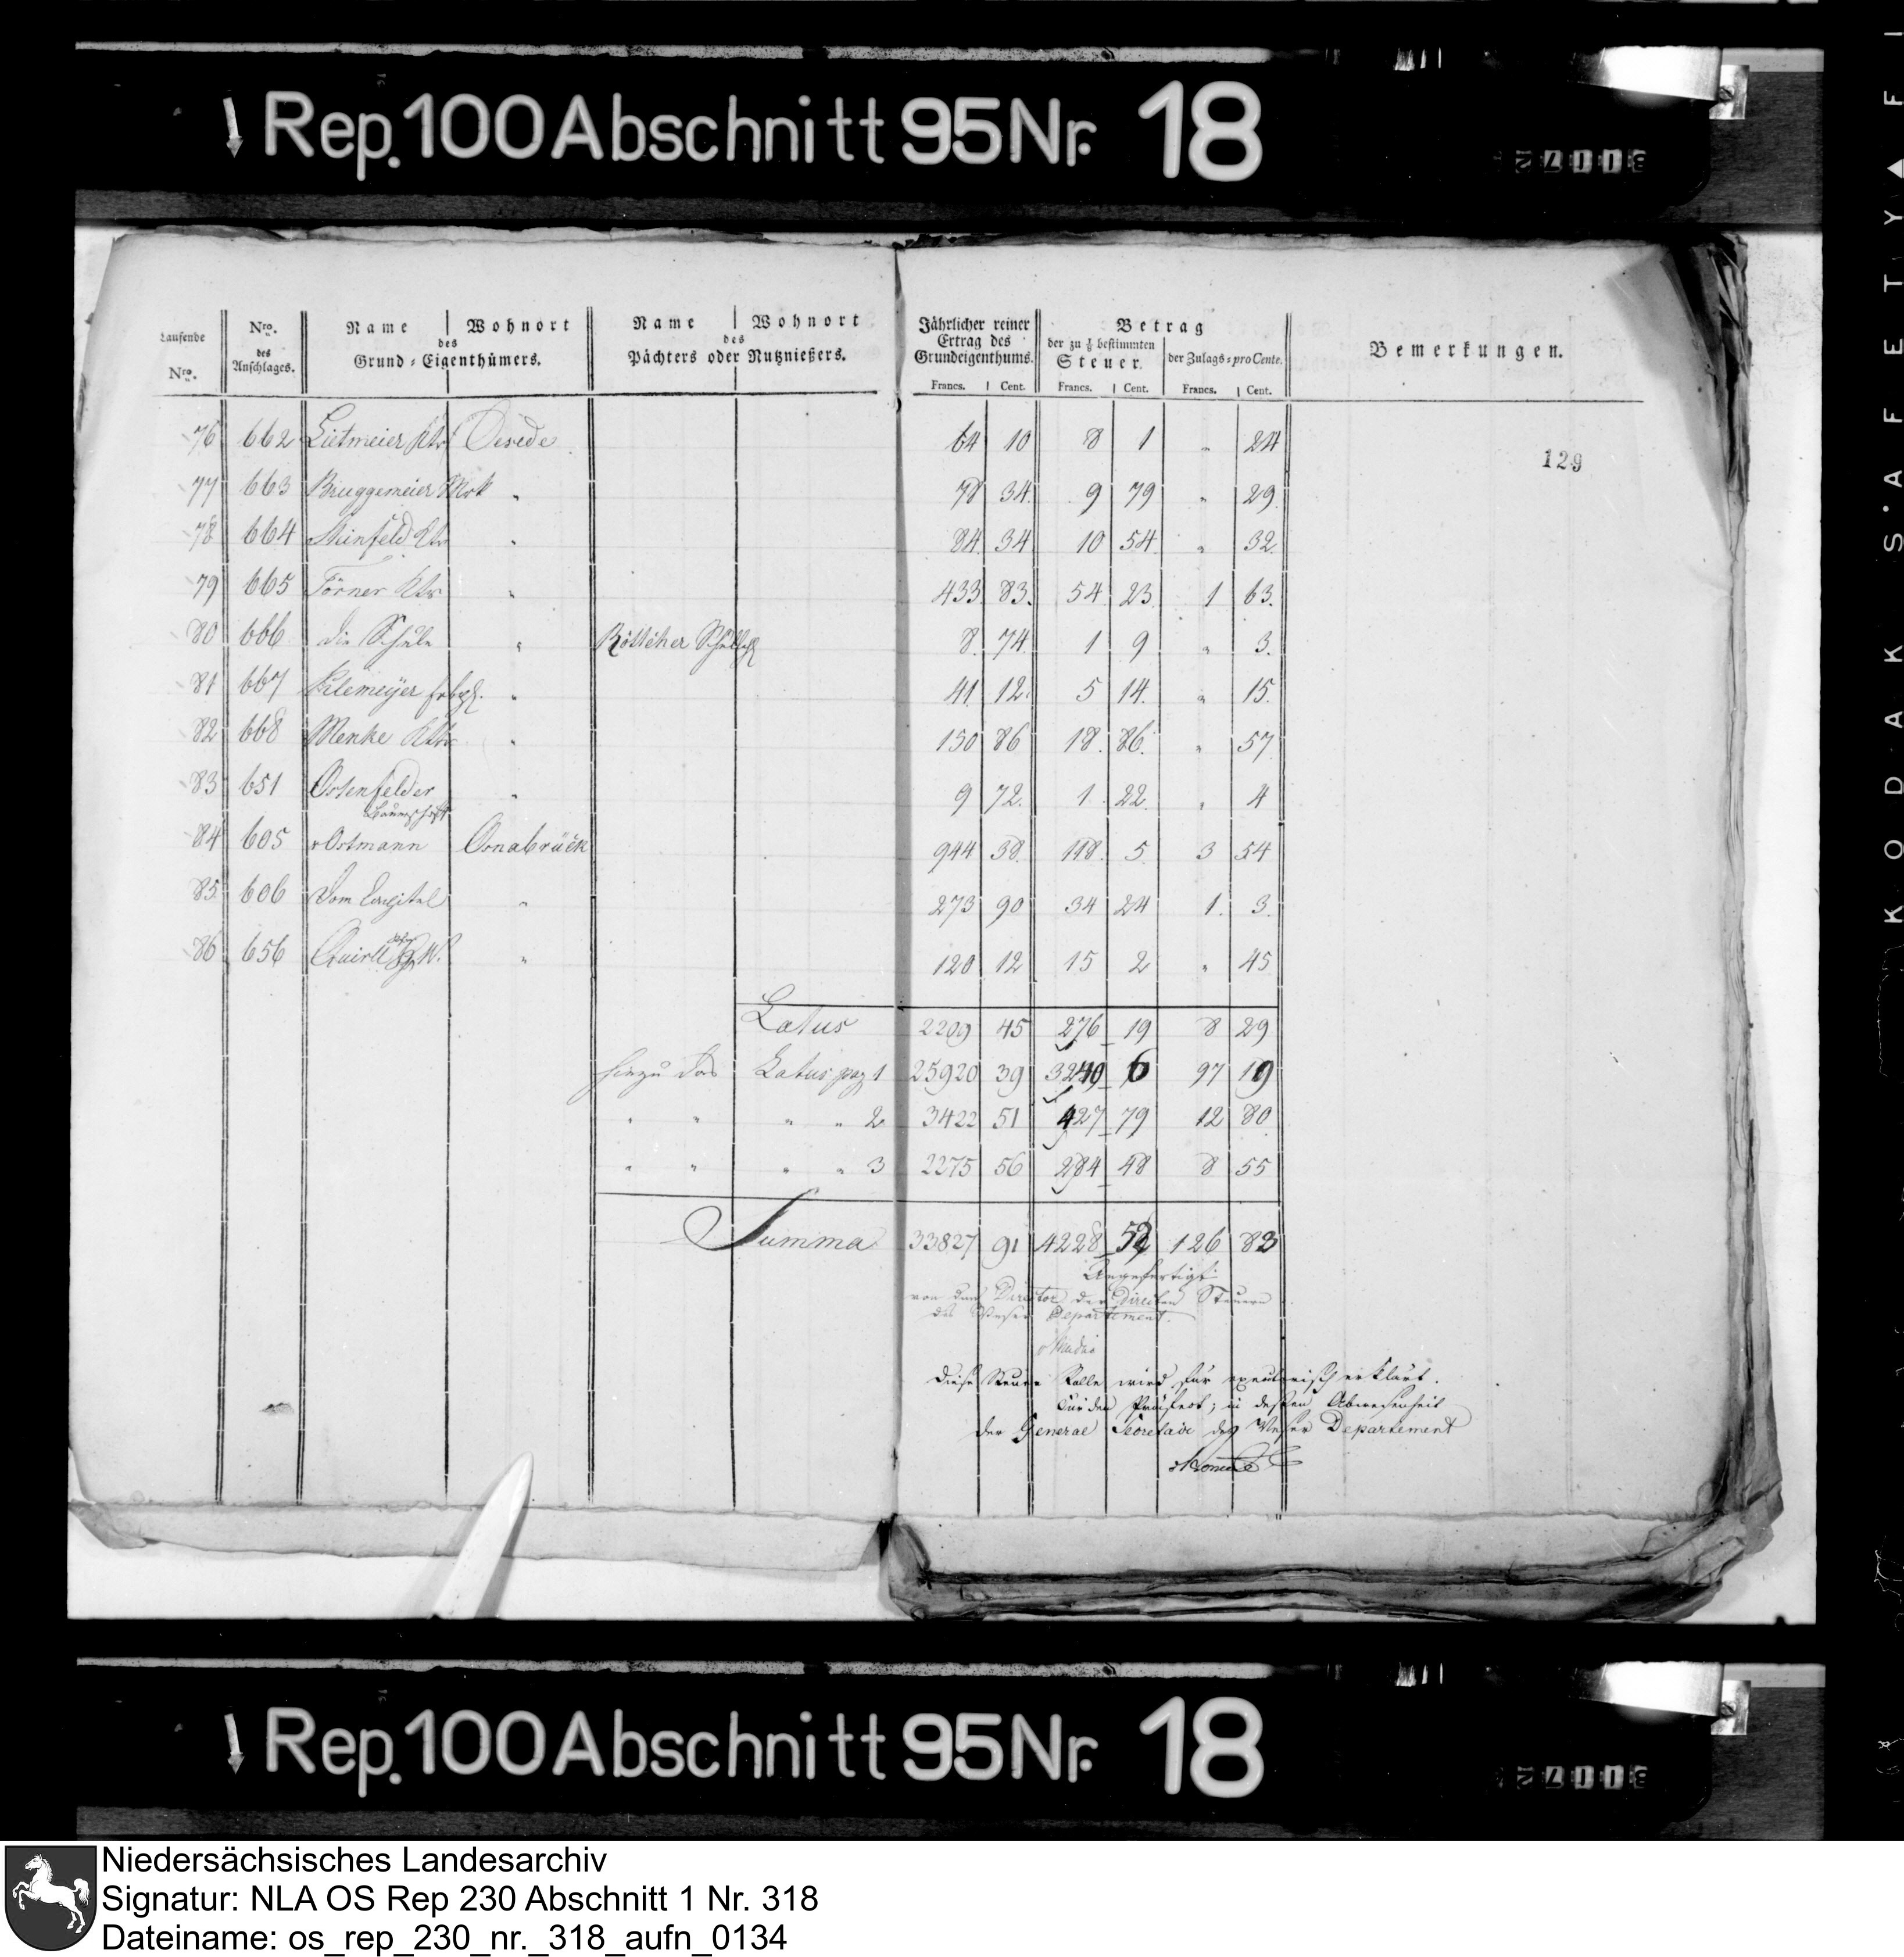 Rep. 100 Abschnitt 95 Nr. 18
KODAK S·AFETY
Laufende Nro. Nro. des Anschlages. Name Wohnort des Grund-Eigenthümers. Name Wohnort des Pächters oder Nutznießers. Jährlicher reiner Ertrag des Grundeigenthums. Francs. Cent. Betrag der zu 1/8 bestimmten Steuer. Francs. Cent. der Zulags-pro Cente. Francs. Cent. Bemerkungen.
129
76 662 Lietmeier Oesede 64 10 8 1 " 24
77 663 Bruggemeier Mrk " 78 34 9 79 " 29
78 664 " 84 34 10 54 " 32
79 665 Törner " 433 83 54 23 1 63
80 666 die Schule " Böttcher 8 74 1 9 " 3
81 667 " 41 12 5 14 " 15
82 668 Menke " 150 86 18 86 " 57
83 651 Ostenfelder Bauerschaft " 9 72 1 22 " 4
84 605 v Ostmann Osnabrück 944 38 118 5 3 54
85 606 Dom Capitel " 273 90 34 24 1 3
86 656 " 120 12 15 2 " 45
Latus 2209 45 276 19 8 29
hinzu das Latus pag 1 25920 39 3240 6 97 19
" " " " 2 3422 51 427 79 12 80
" " " " 3 2275 56 284 48 8 55
Summa 33827 91 4228 52 126 83
Angefertigt
von dem Director der directen Steuern
des Weser Departement.
Diese Steuer Rolle wird für executorisch erklärt.
Für den Präfect; in dessen Abwesenheit
der General Secretair des Weser Departement
Rep. 100 Abschnitt 95 Nr. 18
Niedersächsisches Landesarchiv
Signatur: NLA OS Rep 230 Abschnitt 1 Nr. 318
Dateiname: os_rep_230_nr._318_aufn_0134